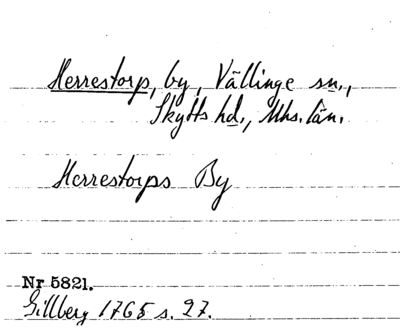 Herrestorp, by, Vällinge sn.,
Skytts hd., Mhs. län.
Herrestorps By
Nr 5821.
Gillberg 1765 s. 27.